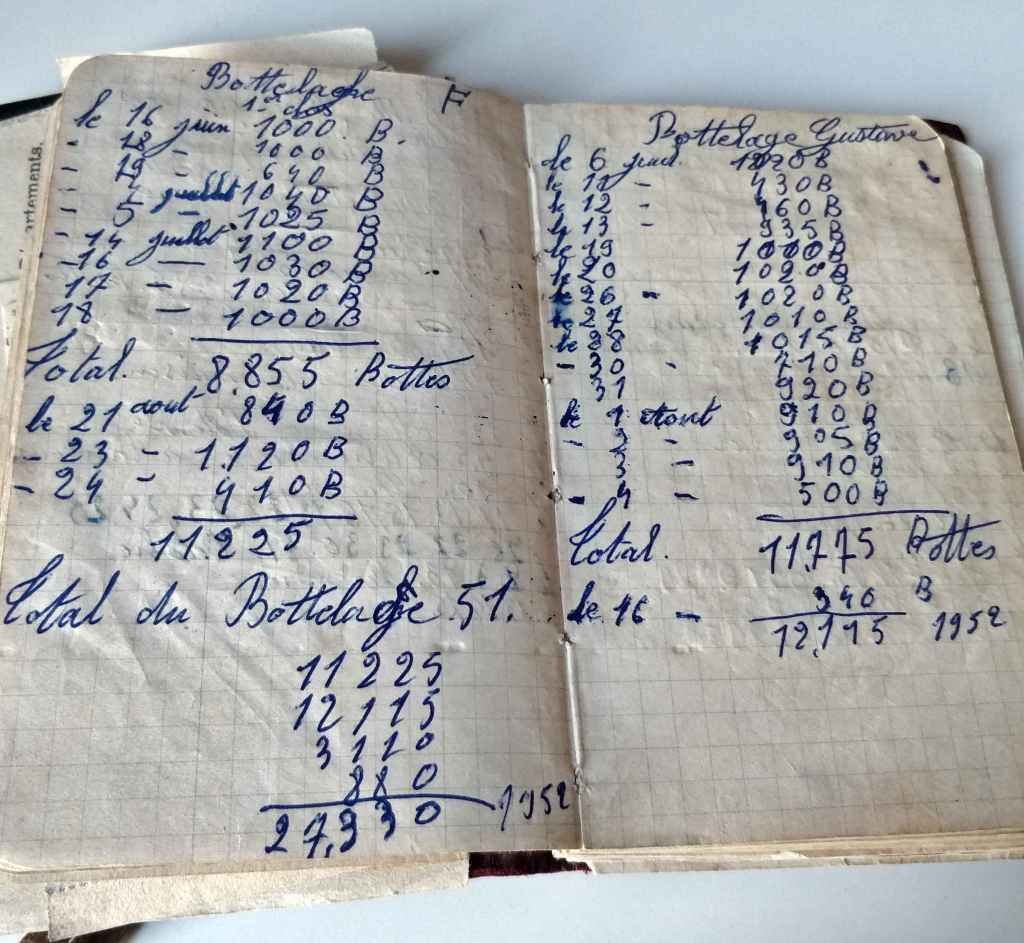 Bottelage F
1er dos
le 16 juin 1000 B.
- 18 - 1000 B
- 19 - 640 B
- 4 juillet 1040 B
- 5 - 1025 B
- 14 juillet 1100 B
- 16 - 1030 B
17 - 1020 B
18 - 1000 B
Total. 8.855 Bottes
le 21 aout 840 B
- 23 - 1.120 B
- 24 - 410 B
11225
Total du Bottelage 51.
11225
12115
3110
880
27.330 1952
artements.
Bottelage Gustave
le 6 juil. B
le 11 - 430 B
le 12 - 960 B
le 13 - 935 B
le 19 1000 B
le 20 1020 B
le 26 - 1020 B
le 27 1010 B
le 28 1015 B
- 30 - 710 B
31 920 B
le 1 Aout 910 B
- - 905 B
3 - 910 B
- 4 - 500 B
Total. 11.775 Bottes
le 16 - 340 B
12.115 1952